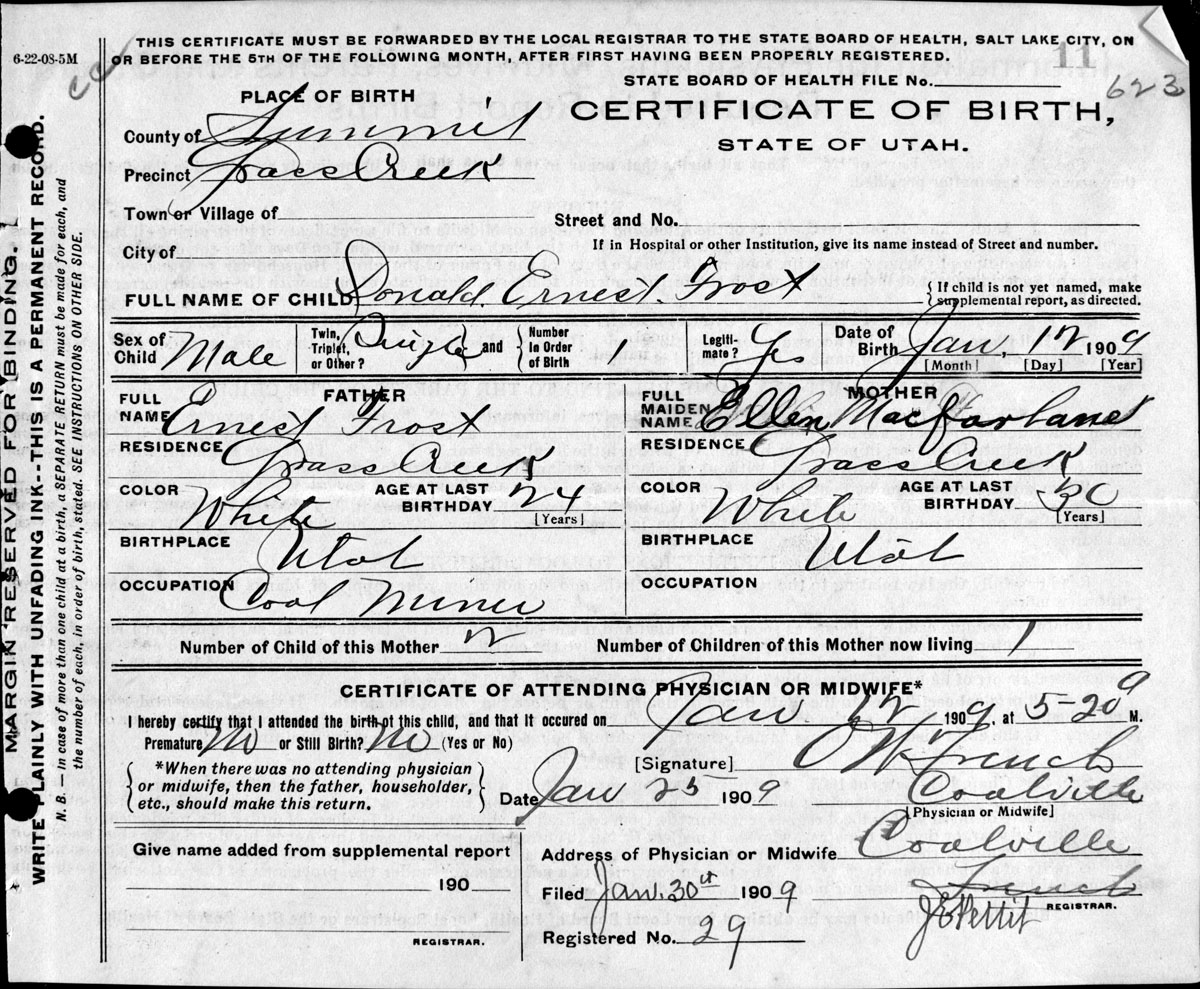 6-22-08-5M
THIS CERTIFICATE MUST BE FORWARDED BY THE LOCAL REGISTRAR TO THE STATE BOARD OF HEALTH, SALT LAKE CITY, ON
OR BEFORE THE 5TH OF THE FOLLOWING MONTH, AFTER FIRST HAVING BEEN PROPERLY REGISTERED.
11
STATE BOARD OF HEALTH FILE No. 623
PLACE OF BIRTH
CERTIFICATE OF BIRTH,
STATE OF UTAH.
County of Summit
Precinct Grass Creek
Town or Village of
Street and No.
If in Hospital or other Institution, give its name instead of Street and number.
City of
FULL NAME OF CHILD Donald Ernest Frost {If child is not yet named, make
supplemental report, as directed.
Sex of Child Male Twin, Triplet, or Other? Single and Number in Order of Birth 1 Legitimate? Yes Date of Birth Jan. 12 1909
[Month] [Day] [Year]
FATHER
FULL NAME Ernest Frost
RESIDENCE Grass Creek
COLOR White AGE AT LAST BIRTHDAY 24 [Years]
BIRTHPLACE Utah
OCCUPATION Coal Miner
MOTHER
FULL MAIDEN NAME Ellen MacFarlane
RESIDENCE Grass Creek
COLOR White AGE AT LAST BIRTHDAY [Years]
BIRTHPLACE Utah
OCCUPATION
Number of Child of this Mother 2 Number of Children of this Mother now living 1
CERTIFICATE OF ATTENDING PHYSICIAN OR MIDWIFE*
I hereby certify that I attended the birth of this child, and that it occured on Jan 12 1909, at 5-20 a M.
Premature No or Still Birth? No (Yes or No)
[Signature] French
*When there was no attending physician
or midwife, then the father, householder,
etc., should make this return.
Date Jan 25 1909 Coalville
[Physician or Midwife]
Give name added from supplemental report
190
REGISTRAR.
Address of Physician or Midwife Coalville
Filed Jan. 30th 1909 French
REGISTRAR.
Registered No. 29 J E Pettit
MARGIN RESERVED FOR BINDING.
WRITE PLAINLY WITH UNFADING INK--THIS IS A PERMANENT RECORD.
N. B. — In case of more than one child at a birth, a SEPARATE RETURN must be made for each, and
the number of each, in order of birth, stated. SEE INSTRUCTIONS ON OTHER SIDE.